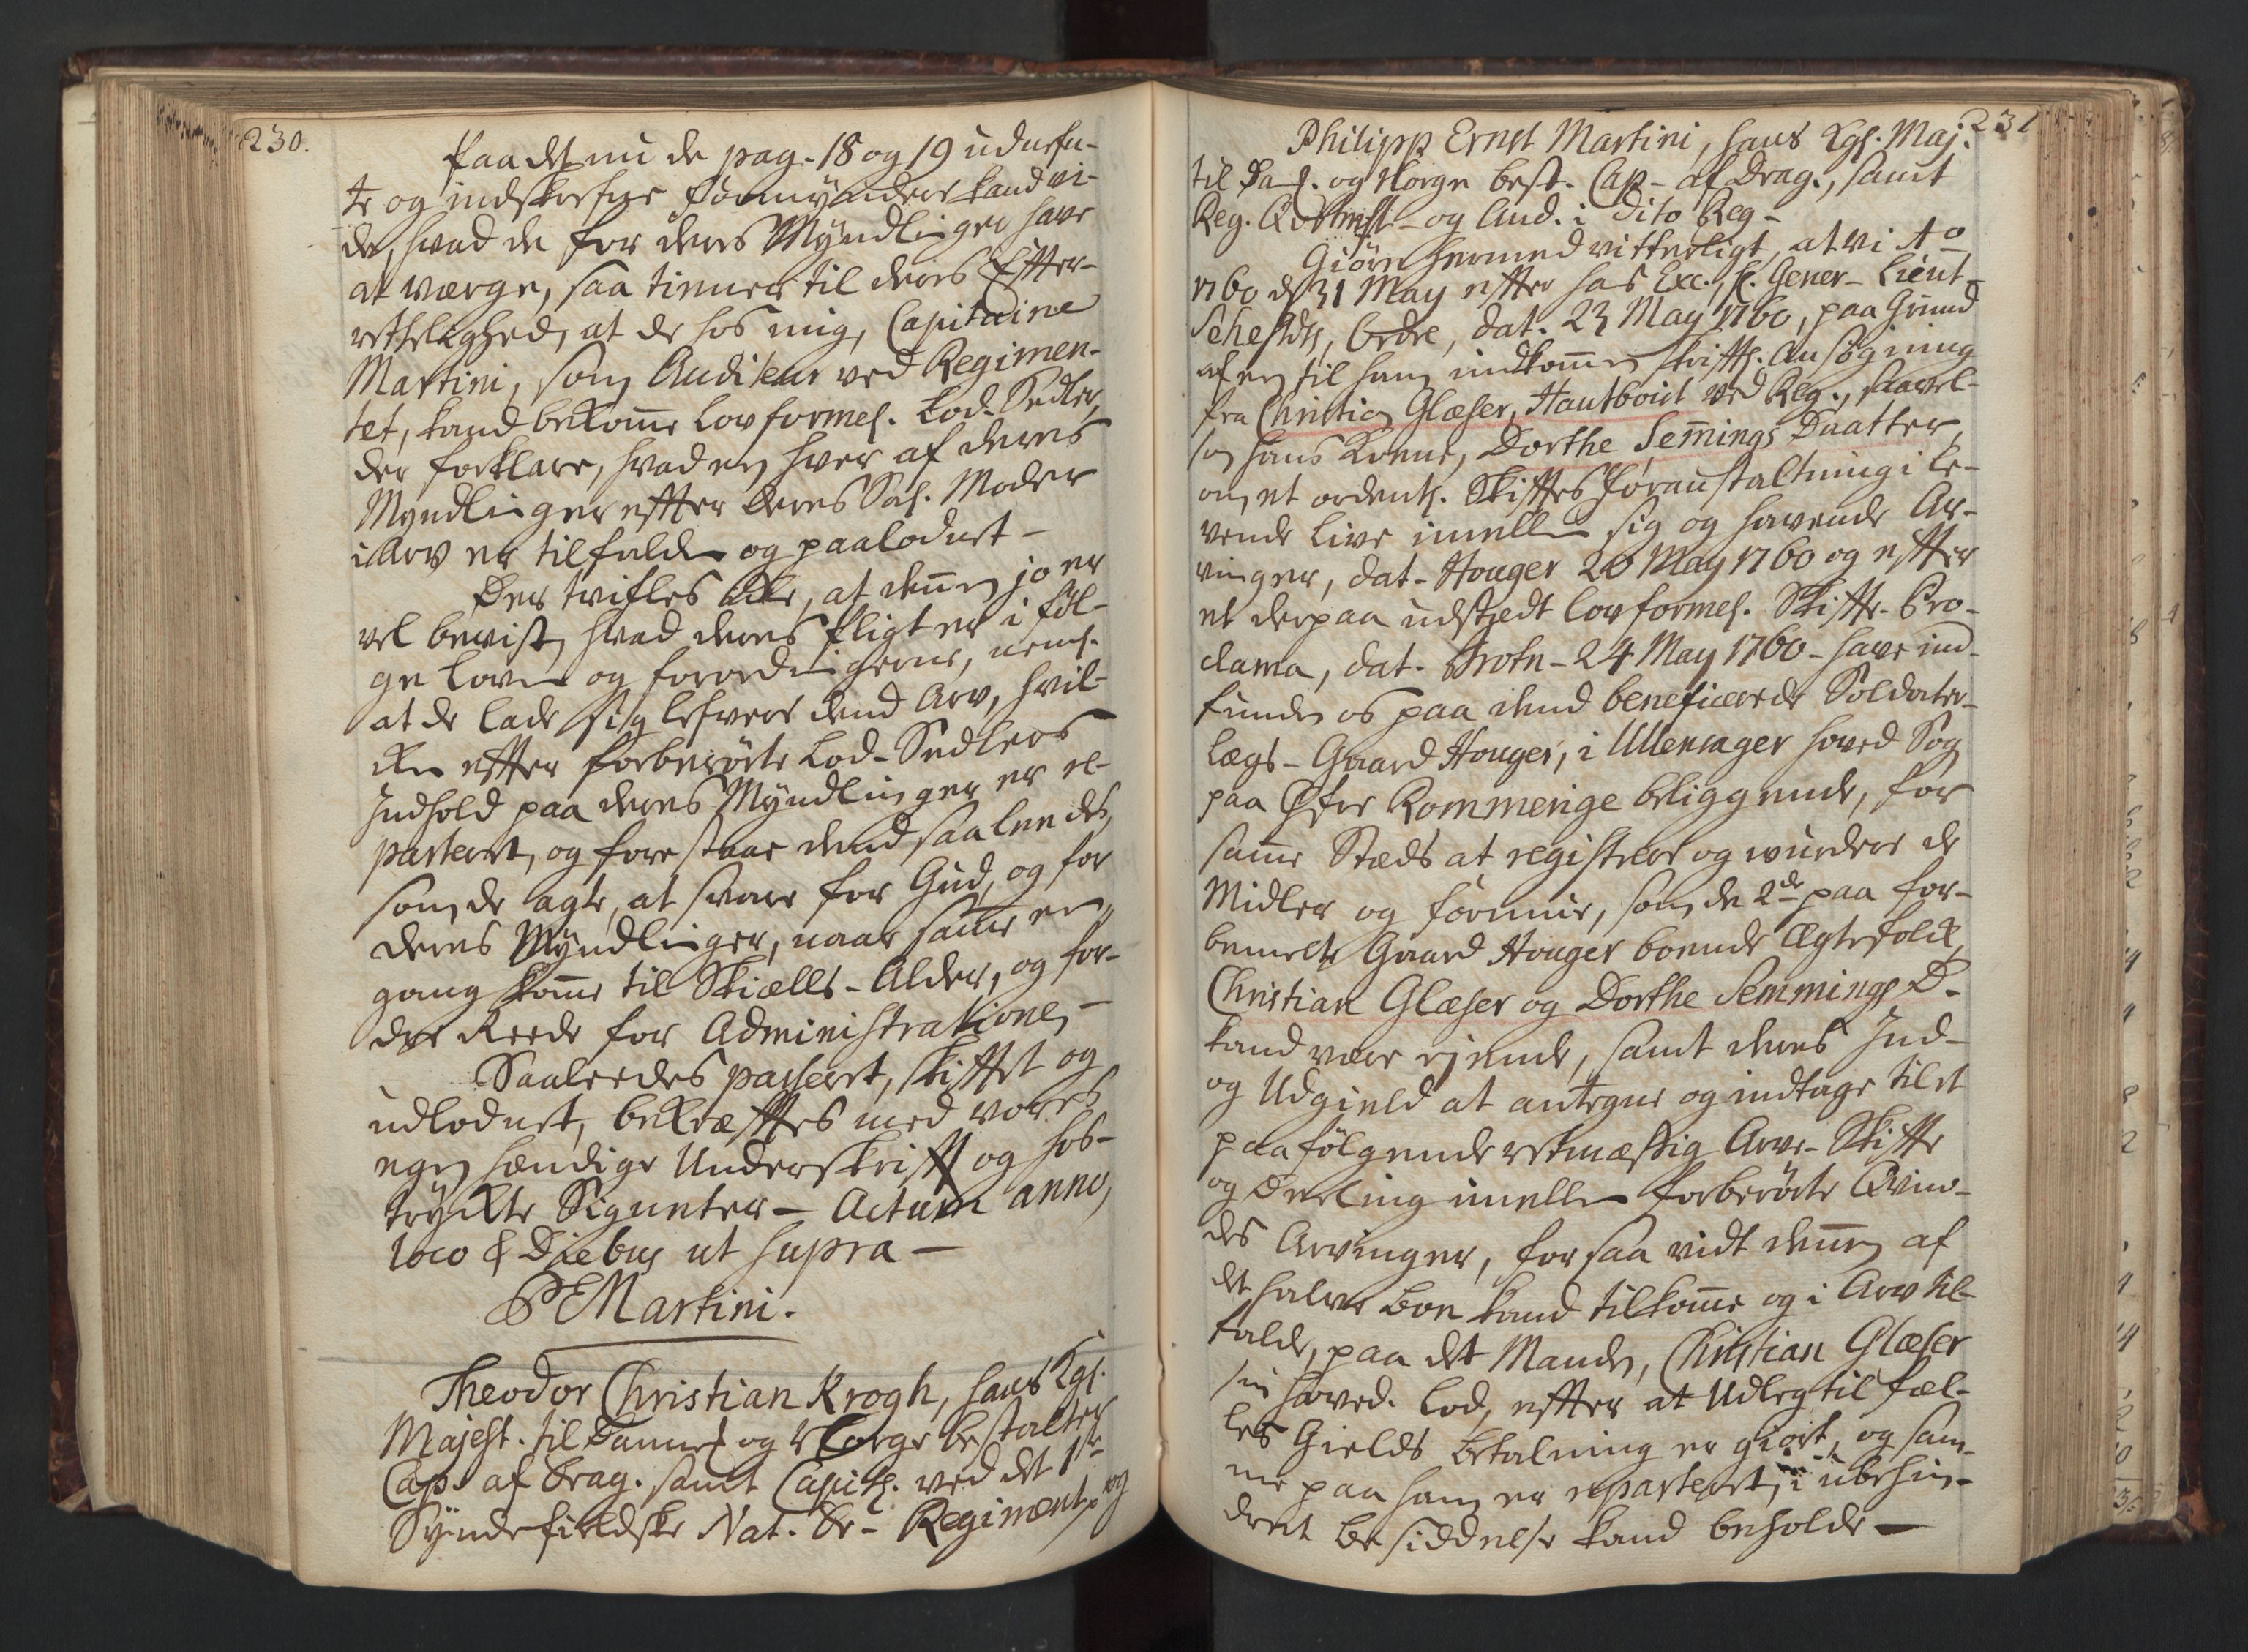 230.
Paa det nu de pag. 18 og 19 udnefn-
te og indskrefne Formyndere kand vi-
de, hvad de for deres Myndlinger have
at værge, saa tiener til deres Efter-
rettelighed, at de hos mig, Capitaine
Martini, som Auditeur ved Regimen-
tet, kand bekome lovformel. Lod-Sedler,
der forklare, hvad en hver af deres
Myndlinger efter deres Sal. Moder
i Arv er tilfalden og paalodnet -
Der tvifles icke, at denem jo er
vel bevist, hvad deres Pligt er i föl-
ge Loven og forordningerne, neml.
at de lade sig lefvere dend Arv, hvil-
ken efter forberörte Lod-Sedlers
Indhold paa deres Myndlinger er re-
parteret, og forestaae dend saaleedes,
som de agte, at svare for Gud, og for
deres Myndlinger, naar same en
gang kome til Skiælls-Alder, og for-
drer Reede for Administrationen -
Saaleedes passeret, skiftet og
udlodnet, bekræftes med vores
egen hændige Underskrift og hos-
tryckte Signeter - Actum anno,
loco & Diebus ut supra -
PE Martini.
Theodor Christian Krogh, hans Kgl.
Majest. til Danmk og Norge bestalter
Cap. af Drag. samt Capit. ved det 1ste
Syndenfieldske Nat. Dr- Regiment, og
231
Philipp Ernst Martini, hans Kgl. May.
til Dan. og Norge best. Cap- af Drag., samt
Reg. Qvtmstr - og Aud. i dito Reg -
Giöre hermed vitterligt, at vi Ao
1760 d 31 May efter has Exc., H. Gener- Lieut-
Sehesteds, Ordre, dat. 23 May 1760, paa Grund
af en til ham indkomen skriftl. Ansögning
fra Christian Glæser, Hautboist ved Reg., saavel-
som hans Kone, Dorthe Semings Daatter,
om et ordentl. Skiftes Foranstaltning i Le-
vende Live imellem sig og havende Ar-
vinger, dat. Houger 20 May 1760 og efter
et derpaa udstædt lovformel. Skifte- Pro-
clama, dat. Trotn- 24 May 1760 - have ind-
funden os paa dend beneficerede Soldater-
lægs-Gaard Houger, i Ullensager hoved Sogn
paa Öfre Rommerige beliggende, for
same Stæds at registrere og wurdere de
Midler og Formue, som de 2de paa for-
bemelte Gaard Houger boende Ægtefolk,
Christian Glæser og Dorthe Semmings D.
kand være ejende, samt deres Ind-
og Udgield at antegne og indtage til et
paafölgende retmæssig Arve-Skifte
og Deeling imellem forberörte Qvin-
des Arvinger, for saa vidt denem af
det halve Boe kand tilkome og i Arv til-
falde, paa det Manden, Christian Glæser
sin hoved. Lod, efter at Udleg til fæl-
les Gields Betalning er giort, og sam-
me paa ham er reparteret, i ubehin-
dret Besiddelse kand beholde -